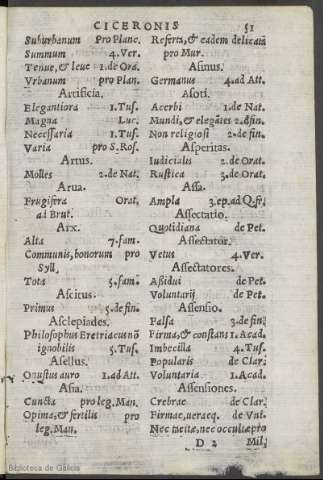 CICERONIS 51
Suburbanum pro Planc.
Summum 4.Ver.
Tenue,& leue 1.de Ora.
Vrbanum pro Plan.
Artificia.
Elegantiora 1.Tus.
Magna Luc.
Necessaria 1.Tus.
Varia pro S.Ros.
Artus.
Molles 2.de Nat.
Arua.
Frugifera Orat.
ad Brut.
Arx.
Alta 7.fam.
Communis,bonorum pro
Syll.
Tota 5.fam.
Ascitus.
Primus 5.de fin.
Asclepiades.
Philosophus Eretriacus nõ
ignobilis 5.Tus.
Asellus.
Onustus auro 1.ad Att.
Asia.
Cuncta pro leg.Man.
Opima,& fertilis pro
leg.Man.
Referta,& eadem delicata
pro Mur.
Asinus.
Germanus 4.ad Att.
Asoti.
Acerbi 1.de Nat.
Mundi,& elegãtes 2.d fin.
Non religiosi 2.de fin.
Asperitas.
Iudicialis 2.de Orat.
Rustica 3.de Orat.
Assa.
Ampla 3.ep.ad Q.fr.
Assectatio.
Quotidiana de Pet.
Assectator.
Vetus 4.Ver.
Assectatores.
Assidui de Pet.
Voluntarij de Pet.
Assensio.
Falsa 3.de fin.
Firma,& constans 1.Acad.
Imbecilla 4.Tus.
Popularis de Clar.
Voluntaria 1.Acad.
Assensiones.
Crebrae de Clar.
Firmae,ueraeq. de Vnt.
Nec occultæ pro
D 2 Mil.
Biblioteca de Galicia